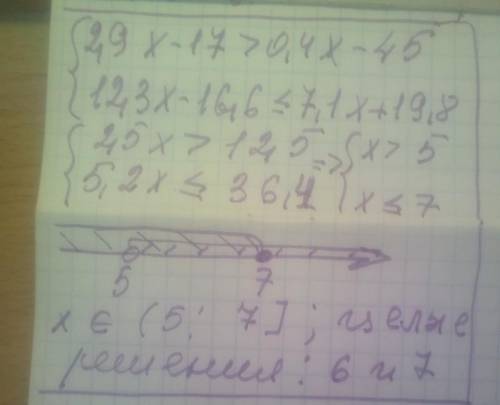 {29x-17>0,4x-45
{12,3x-16,6≤7,1x+19,8
{25x>125 => {x>5
{5,2x≤36,4 {x≤7
5 7
x ∈ (5; 7]; целые
решения: 6 и 7